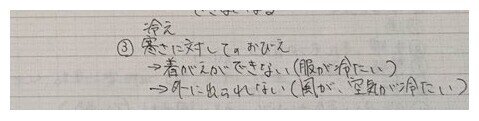 できなくなる
冷え
③ 寒さに対してのおびえ
→着がえができない(服が冷たい)
→外に出られない(風が、空気が冷たい)